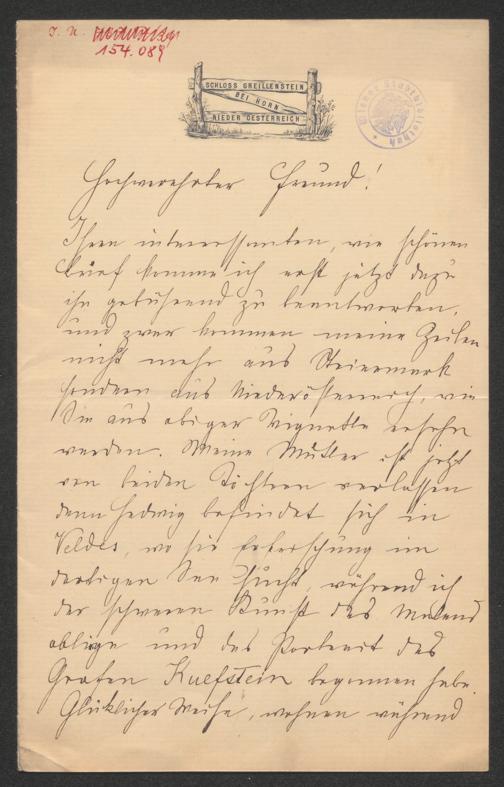 J. N.
154.089
SCHLOSS GREILLENSTEIN
BEI HORN
NIEDER OESTERREICH
Wiener Stadtbibliothek
Hochverehrter Freund!
Ihren interessanten, wie schönen
Brief komme ich erst jetzt dazu
ihn gebührend zu beantworten,
und zwar kommen meine Zeilen
nicht mehr aus Steiermark
sondern aus Niederösterreich, wie
Sie aus obiger Vignette ersehn
werden. Meine Mutter ist jetzt
von beiden Töchtern verlassen
denn Hedwig befindet sich in
Veldes, wo sie Erfrischung im
dortigen See sucht, während ich
der schweren Kunst des Malens
obliege und das Portrait des
Grafen Kuefstein begonnen habe.
Glücklicher Weise, wohnen während